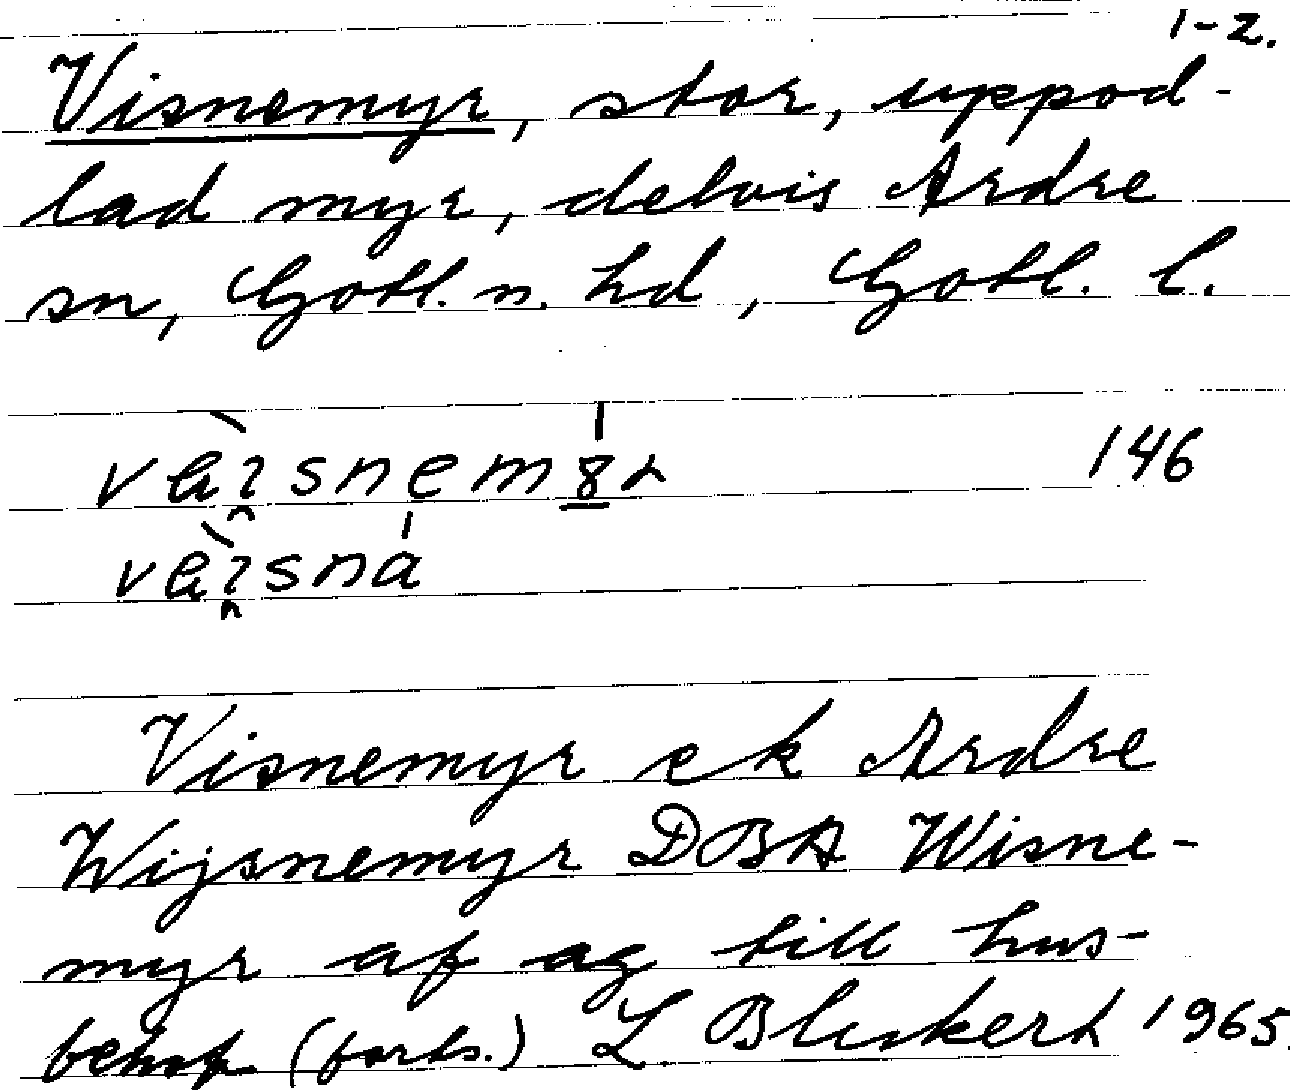 1-2.
Visnemyr, stor, uppod-
lad myr, delvis Ardre
sn, Gotl. n. hd, Gotl. l.
146
Visnemyr ek Ardre
Wijsnemyr DBA Wisne-
myr af ag till hus-
behof (forts.) L Blickert 1965.